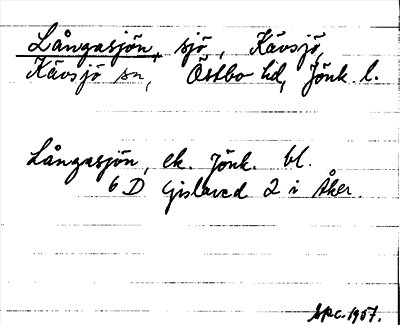 Långasjön, sjö, Kävsjö,
Kävsjö sn, Östbo hd, Jönk. l.
Långasjön, ek. Jönk. bl.
6 D Gislaved 2 i Åker.
1957.